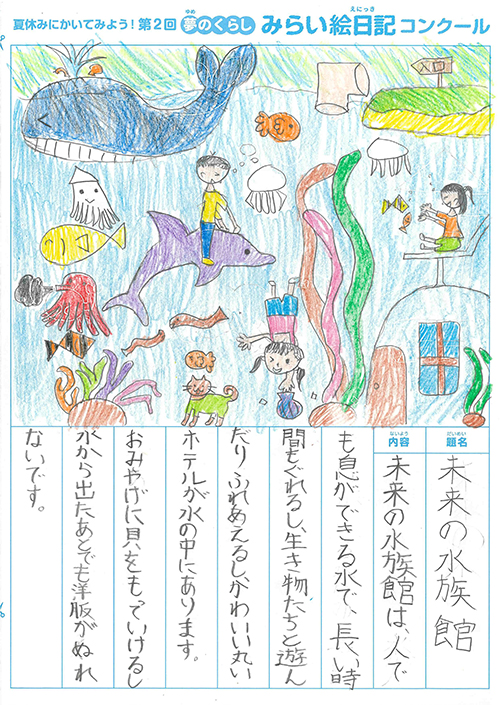 夏休みにかいてみよう!第2回 夢のくらし みらい絵日記コンクール
ゆめ
えにっき
入口
だいめい
題名
未来の水族館
ないよう
内容
未来の水族館は、人で
も息ができる水で、長い時
間もぐれるし、生き物たちと遊ん
だりふれあえるし、かわいい丸い
ホテルが水の中にあります。
おみやげに貝をもっていけるし
水から出たあとでも洋服がぬれ
ないです。